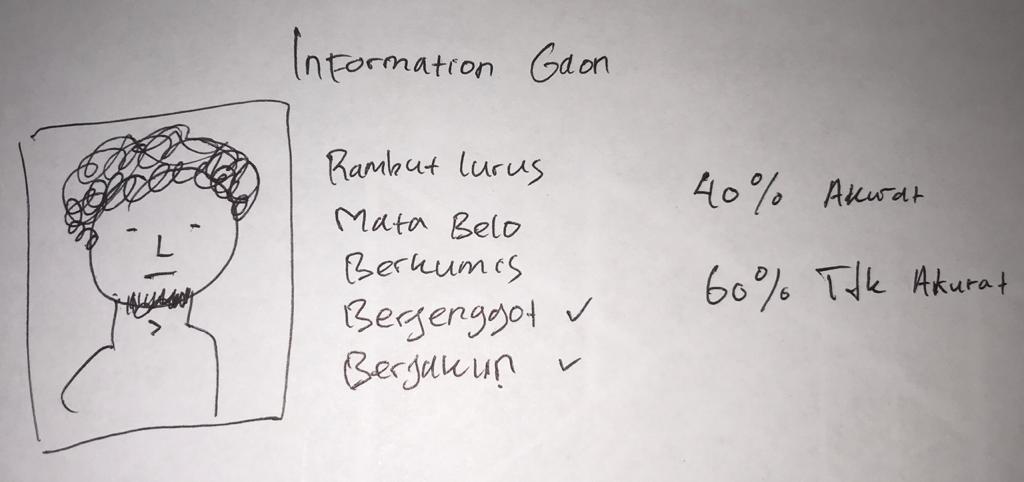 Information Gaon
Rambut lurus
Mata Belo
Berkumis
Berjenggot ✓
Berjakun ✓
40% Akurat
60% Tdk Akurat